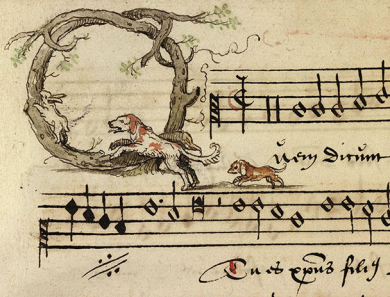 Quem dicunt
Tu es xp̄us filiꝰ